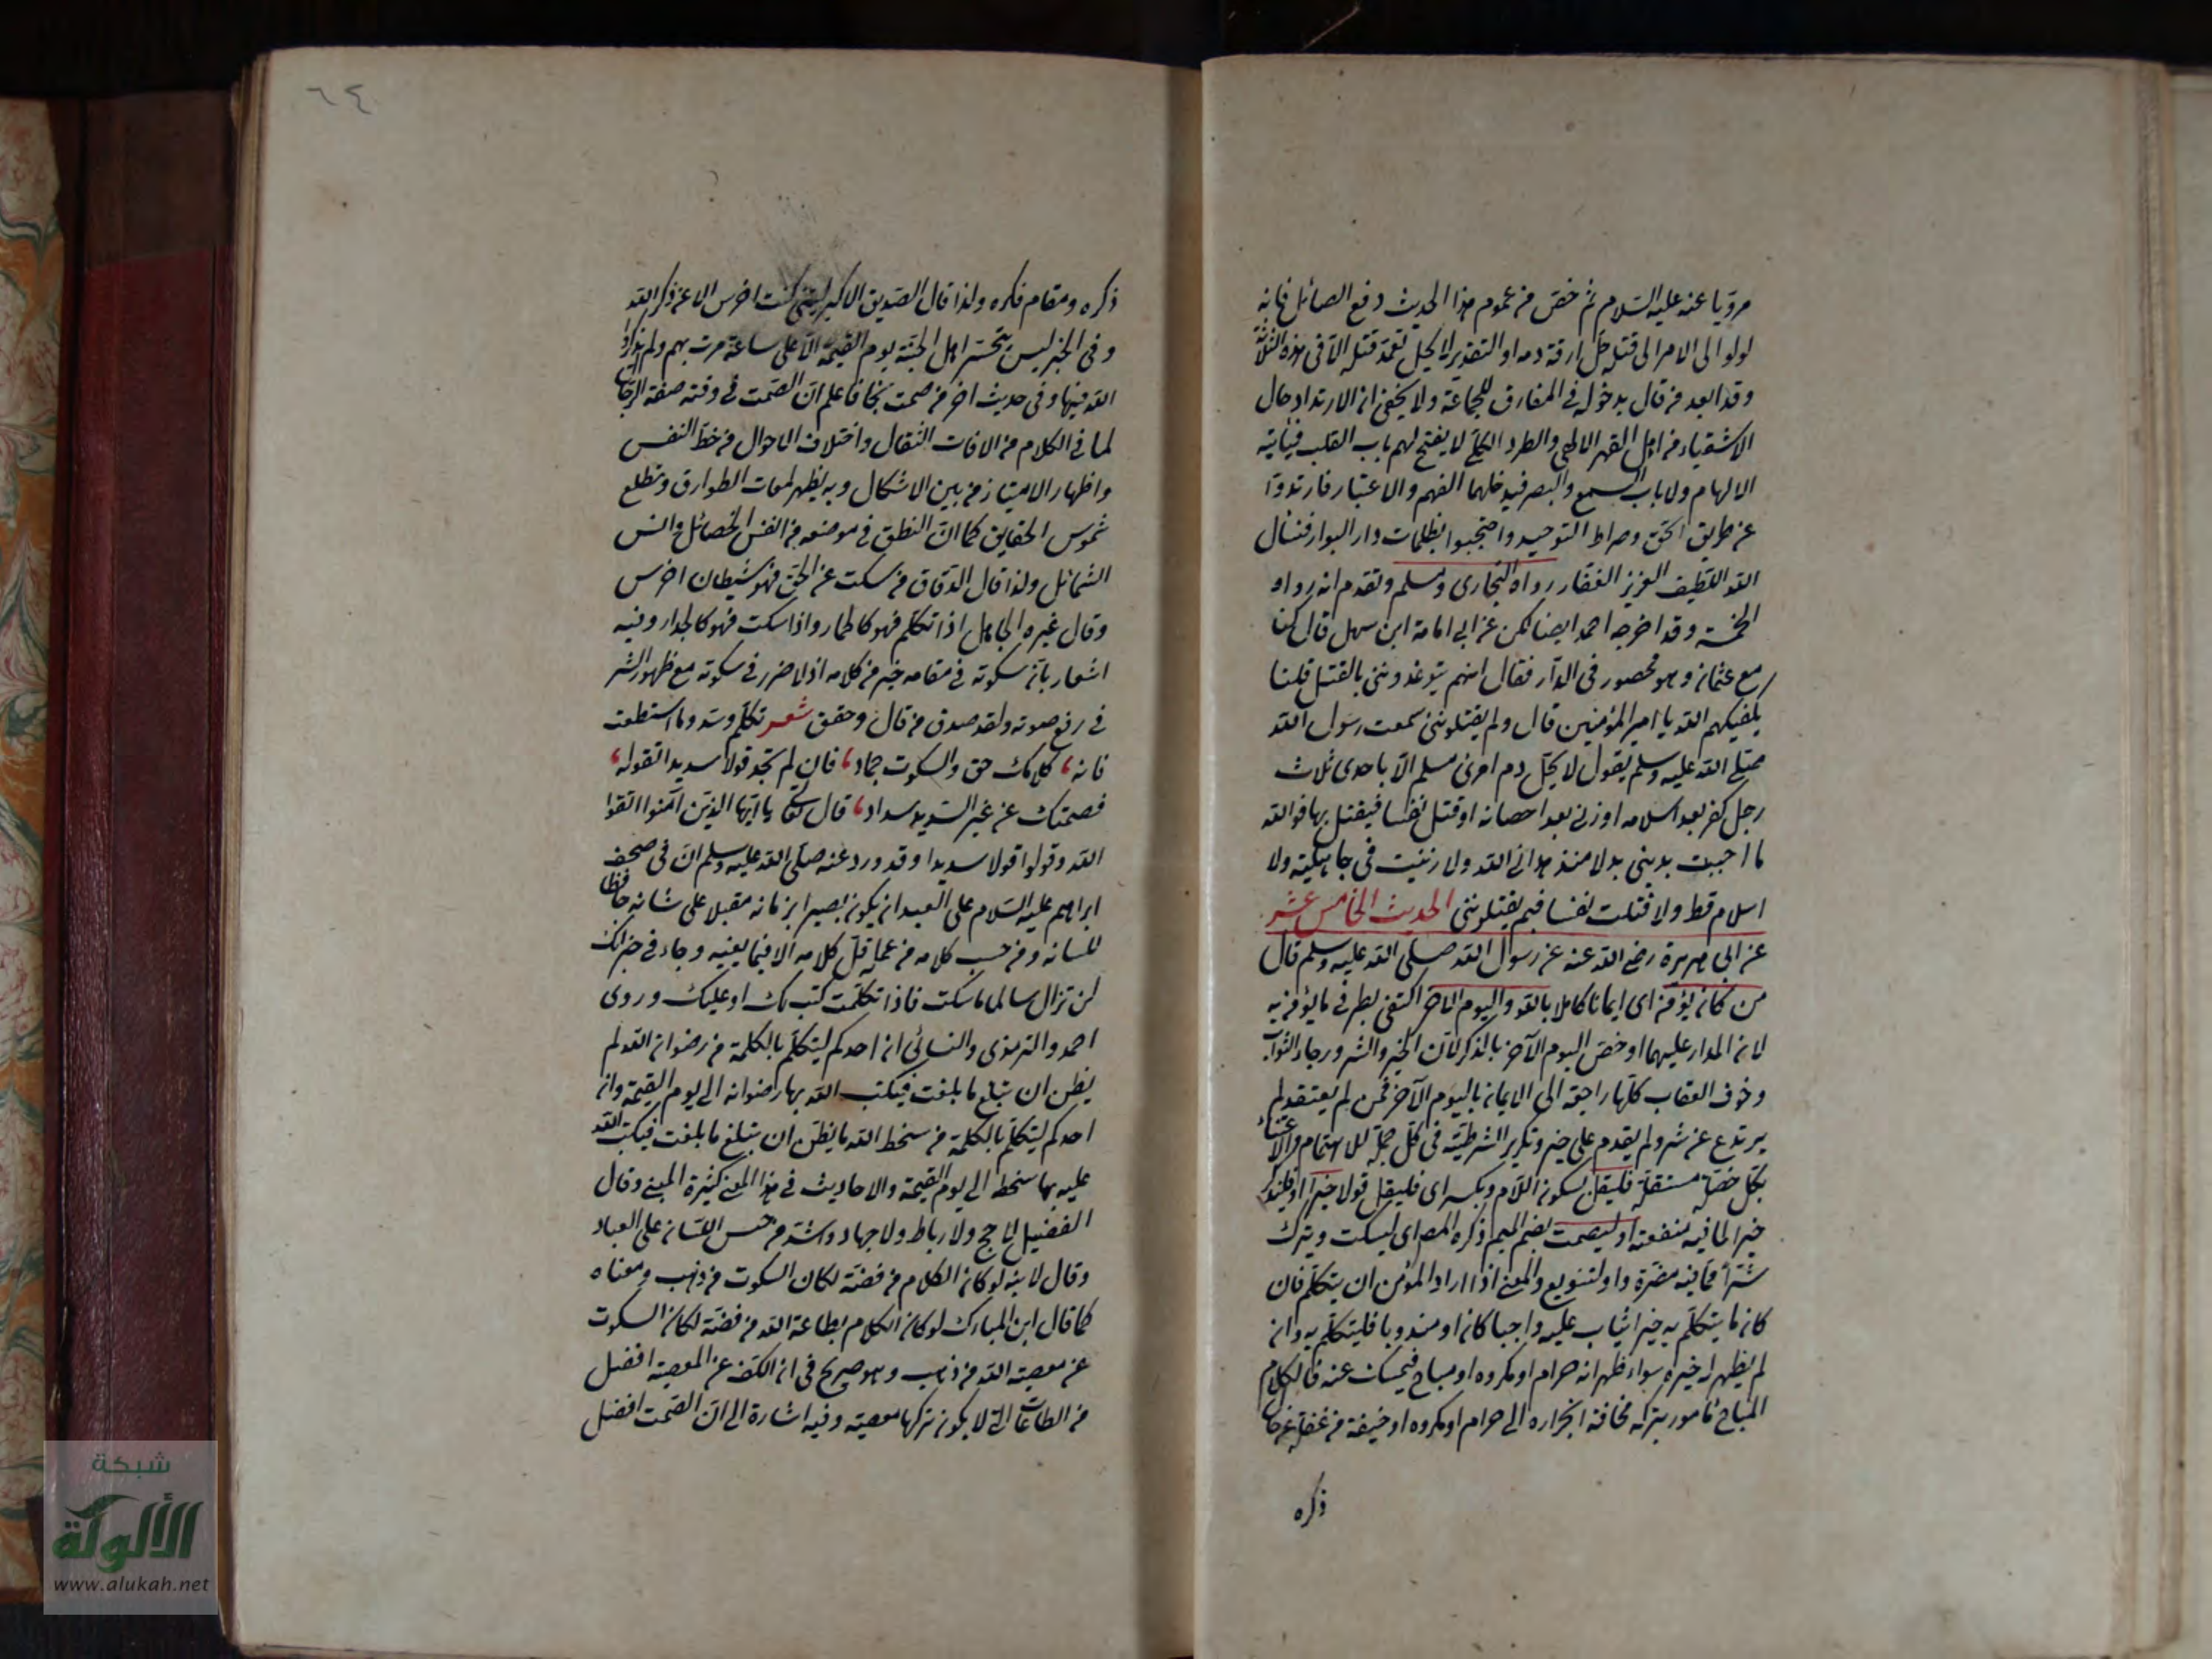 مرويا عنه عليه السلام ثم خص من عموم هذا الحديث دفع الصائل فانه
لو ولو الى الامر الى قتله حل ارقة دمه او التقدير لا يحل تعمد قتله الا في هذه الثلاثة
وقد ابعد من قال بدخوله في المفارق للجماعة ولا يخفى ان الارتداد حال
الاشقياء من اهل القهر الالهي والطرد الكلي لا يفتح لهم باب القلب فيأتيه
الالهام ولا باب السمع والبصر فيدخلهما الفهم والاعتبار فارتدوا
عن طريق الحق وصراط التوحيد واحتجبوا بظلمات دار البوار فنسأل
الله اللطيف العزيز الغفار رواه البخاري ومسلم وتقدم انه رواه
الخمسة وقد اخرجه احمد ايضا لكن عن ابي امامة ابن سهل قال كنا
مع عثمان وهو محصور في الدار فقال انهم يتوعدونني بالقتل قلنا
يكفيكهم الله يا امير المؤمنين قال ولم يقتلونني سمعت رسول الله
صلى الله عليه وسلم يقول لا يحل دم امرئ مسلم الا باحدى ثلاث
رجل كفر بعد اسلامه او زنى بعد احصانه او قتل نفسا فيقتل بها فوالله
ما احببت بديني بدلا منذ هداني الله ولا زنيت في جاهلية ولا
اسلام قط ولا قتلت نفسا فبم يقتلونني الحديث الخامس عشر
عن ابي هريرة رضي الله عنه عن رسول الله صلى الله عليه وسلم قال
من كان يؤمن اى ايمانا كاملا بالله واليوم الآخر اكتفى بطرفي ما يؤمن به
لان المدار عليهما او خص اليوم الآخر بالذكر لان الخير والشر ورجاء الثواب
وخوف العقاب كلها راجعة الى الايمان باليوم الآخر فمن لم يعتقد لم
يرتدع عن شر ولم يقدم على خير وتكرير الشرطية في كل جملة للاهتمام والاعتناء
بكل خصلة مستقلة فليقل بسكون اللام وبكسر اى فليقل قولا خيرا او فليذكر
خيرا لما فيه منفعته او ليصمت بضم الميم ذكره المص اى ليسكت ويترك
شرا مما فيه مضرة واو لتنويع والمعنى اذا اراد المؤمن ان يتكلم فان
كان ما يتكلم به خيرا يثاب عليه واجبا كان او مندوبا فليتكلم به وان
لم يظهر له خيره سواء ظهر انه حرام او مكروه او مباح فيمسك عنه فالكلام
المباح مأمور بتركه مخافة انجراره الى حرام او مكروه او خيفة من غفلة عن حال
ذكره
٦٤
ذكره ومقام فكره ولذا قال الصديق الاكبر ليتني كنت اخرس الا عن ذكر الله
وفي الخبر ليس يتحسر اهل الجنة يوم القيمة الا على ساعة مرت بهم ولم يذكروا
الله فيها وفي حديث اخر من صمت نجا فاعلم ان الصمت في وقته صفة الرجال
لما في الكلام من الافات الثقال واختلاف الاحوال من حظ النفس
واظهار الامتياز من بين الاشكال وبه يظهر لمعات الطوارق وتطلع
شموس الحقايق كما ان النطق في موضعه من انفس الخصائل وانس
الشمائل ولذا قال الدقاق من سكت عن الحق فهو شيطان اخرس
وقال غيره الجاهل اذا تكلم فهو كالحمار واذا سكت فهو كالجدار وفيه
اشعار بان سكوته في مقامه خير من كلامه اذ لا ضرر في سكوته مع ظهور الشر
في رفع صوته ولقد صدق من قال وحقق شعر تكلم وسدد ما استطعت
فانه ، كلامك حق والسكوت جماد ، فان لم تجد قولا سديدا تقوله ،
فصمتك عن غير السديد سداد ، قال تعالى يا ايها الذين آمنوا اتقوا
الله وقولوا قولا سديدا وقد ورد عنه صلى الله عليه وسلم ان في صحف
ابراهيم عليه السلام على العبد ان يكون بصيرا بزمانه مقبلا على شانه حافظا
للسانه ومن حسب كلامه من عمله قل كلامه الا فيما يعنيه وجاء في خبر انك
لن تزال سالما ما سكت فاذا تكلمت كتب لك او عليك وروى
احمد والترمذي والنسائي ان احدكم ليتكلم بالكلمة من رضوان الله لم
يظن ان تبلغ ما بلغت فيكتب الله بها رضوانه الى يوم القيمة وان
احدكم ليتكلم بالكلمة من سخط الله ما يظن ان تبلغ ما بلغت فيكتب الله
عليه بها سخطه الى يوم القيمة والاحاديث في هذا المعنى كثيرة المبنى وقال
الفضيل لا حج ولا رباط ولا جهاد اشد من حبس اللسان على العباد
وقال لابنه لو كان الكلام من فضة لكان السكوت من ذهب ومعناه
كما قال ابن المبارك لو كان الكلام بطاعة الله من فضة لكان السكوت
عن معصية الله من ذهب وهو صريح في ان الكف عن المعصية افضل
من الطاعات التي لا يكون تركها معصية وفيه اشارة الى ان الصمت افضل
شبكة
الألوكة
www.alukah.net